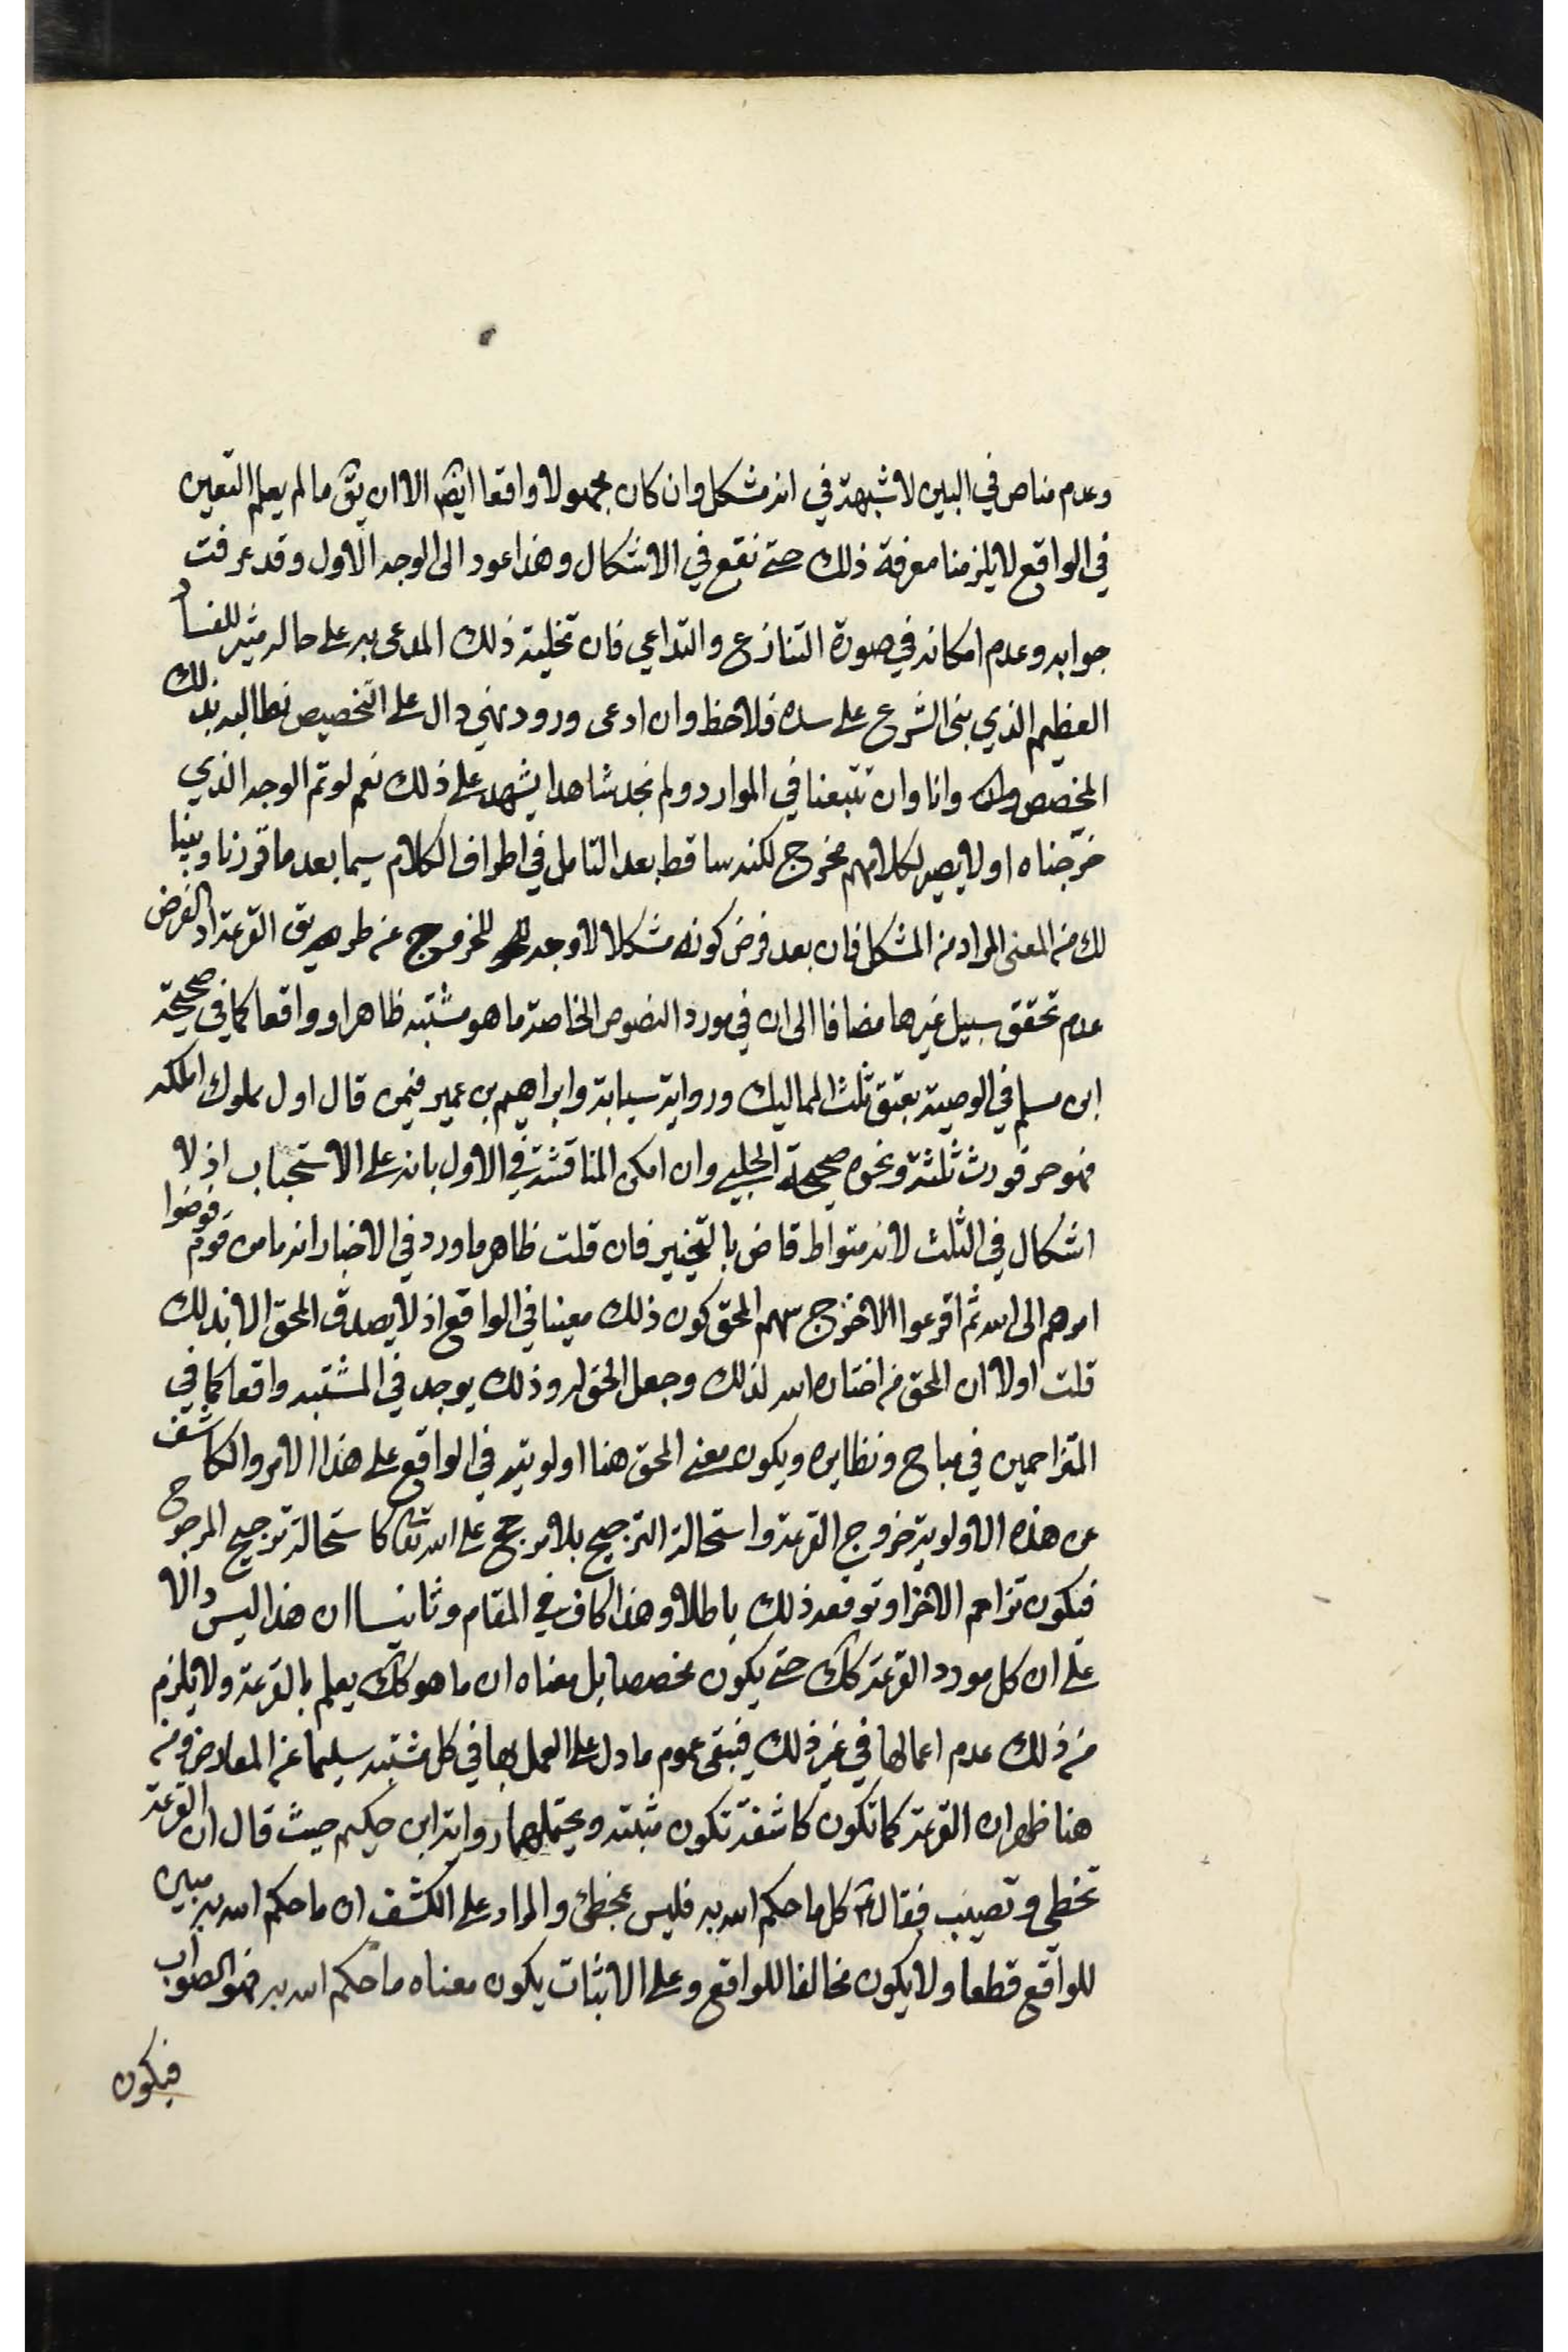 وعدم مناص في البين لا شبهة في انه مشكل وان كان مجهولا واقعا ايضا الا ان يق ما لم يعلم التعين
في الواقع لا يلزمنا معرفة ذلك حتى نقع في الاشكال وهذا عود الى الوجه الاول وقد عرفت
جوابه وعدم امكانه في صورة التنازع والتداعي فان تخلية ذلك المدعى به على حاله مثير للفساد
العظيم الذي بنى الشرع على سده فلاحظ وان ادعى ورود نهي دال على التخصيص نطالبه بذلك
المخصص وانا وان تتبعنا في الموارد ولم نجد شاهدا يشهد على ذلك نعم لو تم الوجه الذي
خرجناه اولا يصير لكلامهم مخرج لكنه ساقط بعد التامل في اطراف الكلام سيما بعد ما قررنا وبينا
لك من المعنى المراد من المشكل فان بعد فرض كونه مشكلا لا وجه للخروج عن طريق القرعة اذ الفرض
عدم تحقق سبيل غيرها مضافا الى ان في مورد النصوص الخاصة ما هو مشتبه ظاهرا وواقعا كما في صحيحة
ابن مسلم في الوصية بعتق ثلث المماليك ورواية سيابة وابراهيم بن عمير فيمن قال اول مملوك املكه
فهو حر فورث ثلثة ونحوه صحيحة الحلبي وان امكن المناقشة في الاول بانه على الاستحباب اذ لا
اشكال في الثلث لانه متواط قاض بالتخيير فان قلت ظاهر ما ورد في الاخبار انه ما من قوم فوضوا
امرهم الى الله ثم اقرعوا الا خرج سهم المحق كون ذلك معينا في الواقع اذ لا يصدق المحق الا بذلك
قلت اولا ان المحق من اختاره الله لذلك وجعل الحق له وذلك يوجد في المشتبه واقعا كما في
المتزاحمين في مباح ونظايره ويكون معنى المحق هنا اولويته في الواقع على هذا الامر والكاشف
عن هذه الاولوية خروج القرعة واستحالة الترجيح بلا مرجح على الله تعا كاستحالة ترجيح المرجوح
فيكون تزاحم الاخر او توقعه ذلك باطلا وهذا كاف في المقام وثانيا ان هذا ليس دالا
على ان كل مورد القرعة كك حتى يكون مخصصا بل معناه ان ما هو كك يعلم بالقرعة ولا يلزم
من ذلك عدم اعمالها في غير ذلك فيبقى عموم ما دل على العمل بها في كل مشتبه سليما عن المعارض ومن
هنا ظهر ان القرعة كما تكون كاشفة تكون مثبتة ويحتملهما رواية ابن حكيم حيث قال ان القرعة
تخطي وتصيب فقال ع كل ما حكم الله به فليس بمخطئ والمراد على الكشف ان ما حكم الله به مبين
للواقع قطعا ولا يكون مخالفا للواقع وعلى الاثبات يكون معناه ما حكم الله به فهو الصواب
فيكون